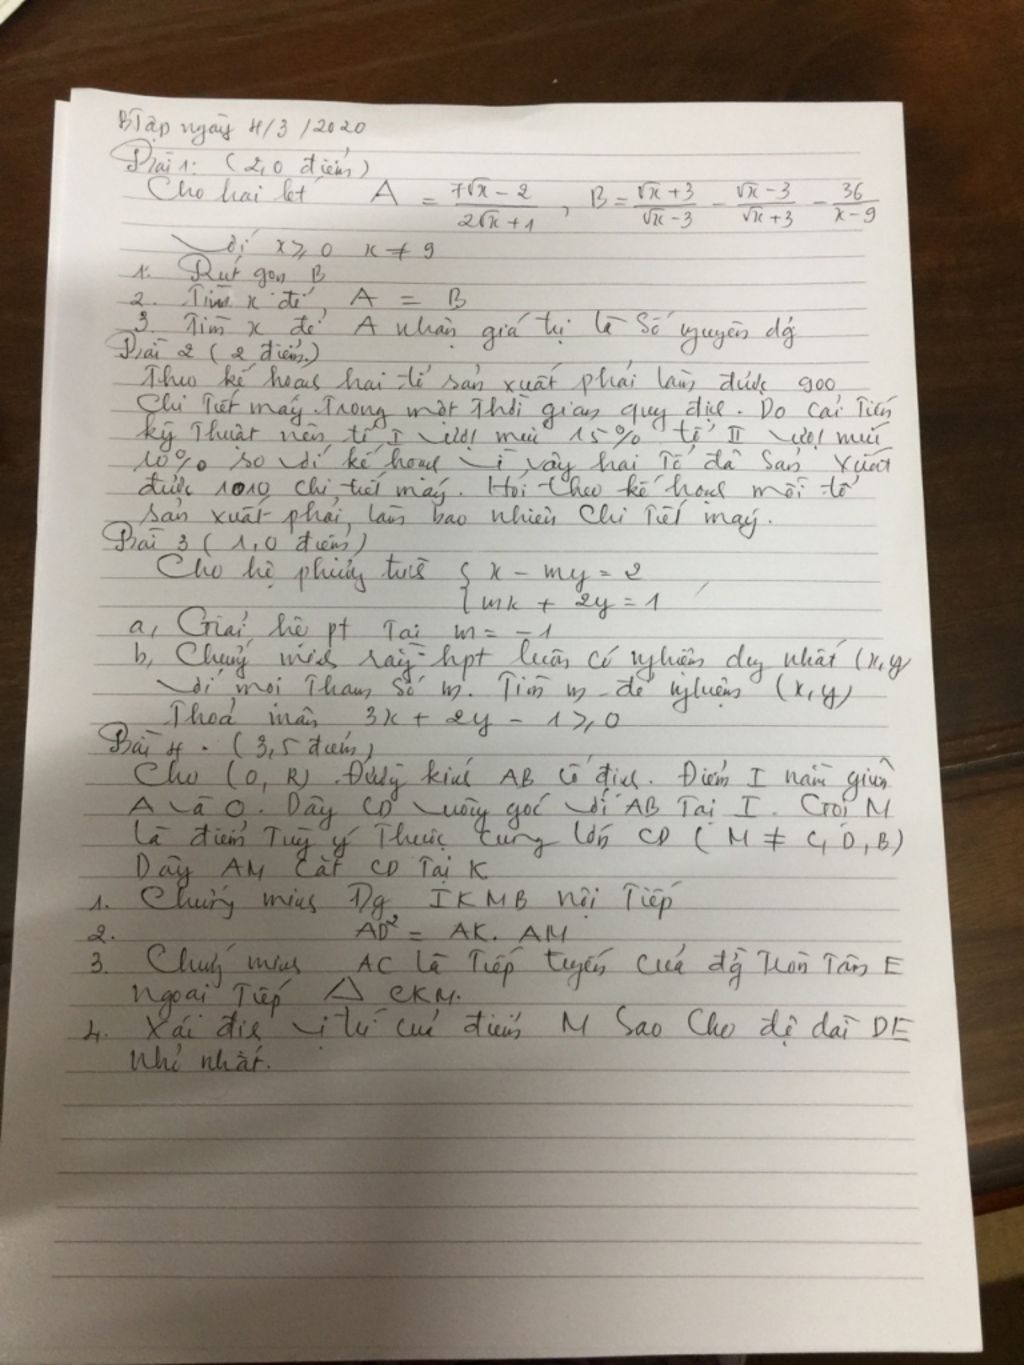 BTập ngày 4/3/2020
Bài 1: (2,0 điểm)
Cho hai bt A = \frac{7\sqrt{x} - 2}{2\sqrt{x} + 1}, B = \frac{\sqrt{x} + 3}{\sqrt{x} - 3} - \frac{\sqrt{x} - 3}{\sqrt{x} + 3} - \frac{36}{x - 9}
Với x ⩾ 0 x ≠ 9
1. Rút gọn B
2. Tìm x để A = B
3. Tìm x để A nhận giá trị là số nguyên dg
Bài 2 (2 điểm.)
Theo kế hoạch hai tổ sản xuất phải làm được 900
Chi tiết máy. Trong một thời gian quy định. Do cải tiến
kỹ thuật nên tổ I vượt mức 15% tổ II vượt mức
10% so với kế hoạch vì vậy hai tổ đã sản xuất
được 1010 chi tiết máy. Hỏi theo kế hoạch mỗi tổ
sản xuất phải làm bao nhiêu chi tiết máy.
Bài 3 (1,0 điểm)
Cho hệ phương trình { x - my = 2
{ mx + 2y = 1
a, Giải hệ pt tại m = -1
b, Chứng minh rằng hpt luôn có nghiệm duy nhất (x,y)
với mọi tham số m. Tìm m để nghiệm (x,y)
Thoả mãn 3x + 2y - 1 ⩾ 0
Bài 4. (3,5 điểm)
Cho (O, R). Đường kính AB cố định. Điểm I nằm giữa
A và O. Dây CD vuông góc với AB tại I. Gọi M
là điểm tuỳ ý thuộc cung lớn CD (M ≠ C, D, B)
Dây AM cắt CD tại K
1. Chứng minh Tg IKMB nội tiếp
2. AD² = AK. AM
3. Chứng minh AC là tiếp tuyến của đg tròn tâm E
ngoại tiếp △ CKM.
4. Xác định vị trí của điểm M sao cho độ dài DE
nhỏ nhất.